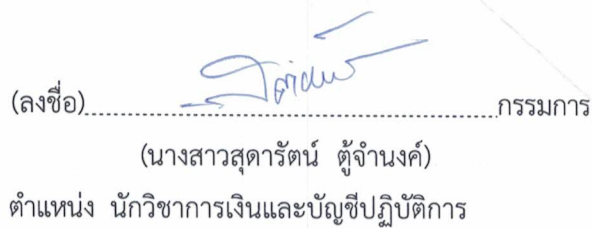 (ลงชื่อ)........................................................กรรมการ
(นางสาวสุดารัตน์ ตู้จำนงค์)
ตำแหน่ง นักวิชาการเงินและบัญชีปฏิบัติการ